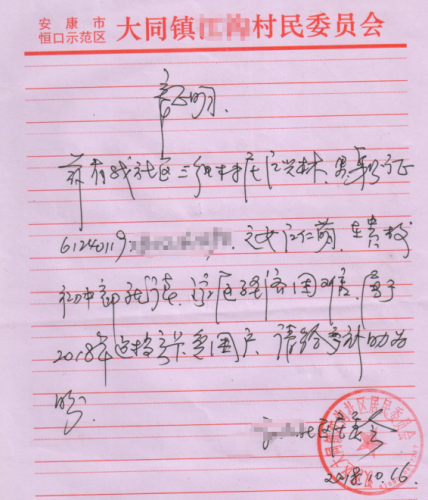 安康市
恒口示范区 大同镇 村民委员会
证明
兹有我社区三组村民 兴林，男，身份证
61240119 ，之女 仁萌，在贵校
初中部就读，家庭经济困难，属于
2018年建档立卡贫困户，请给予补助为
盼
社区居委会
2018.10.16